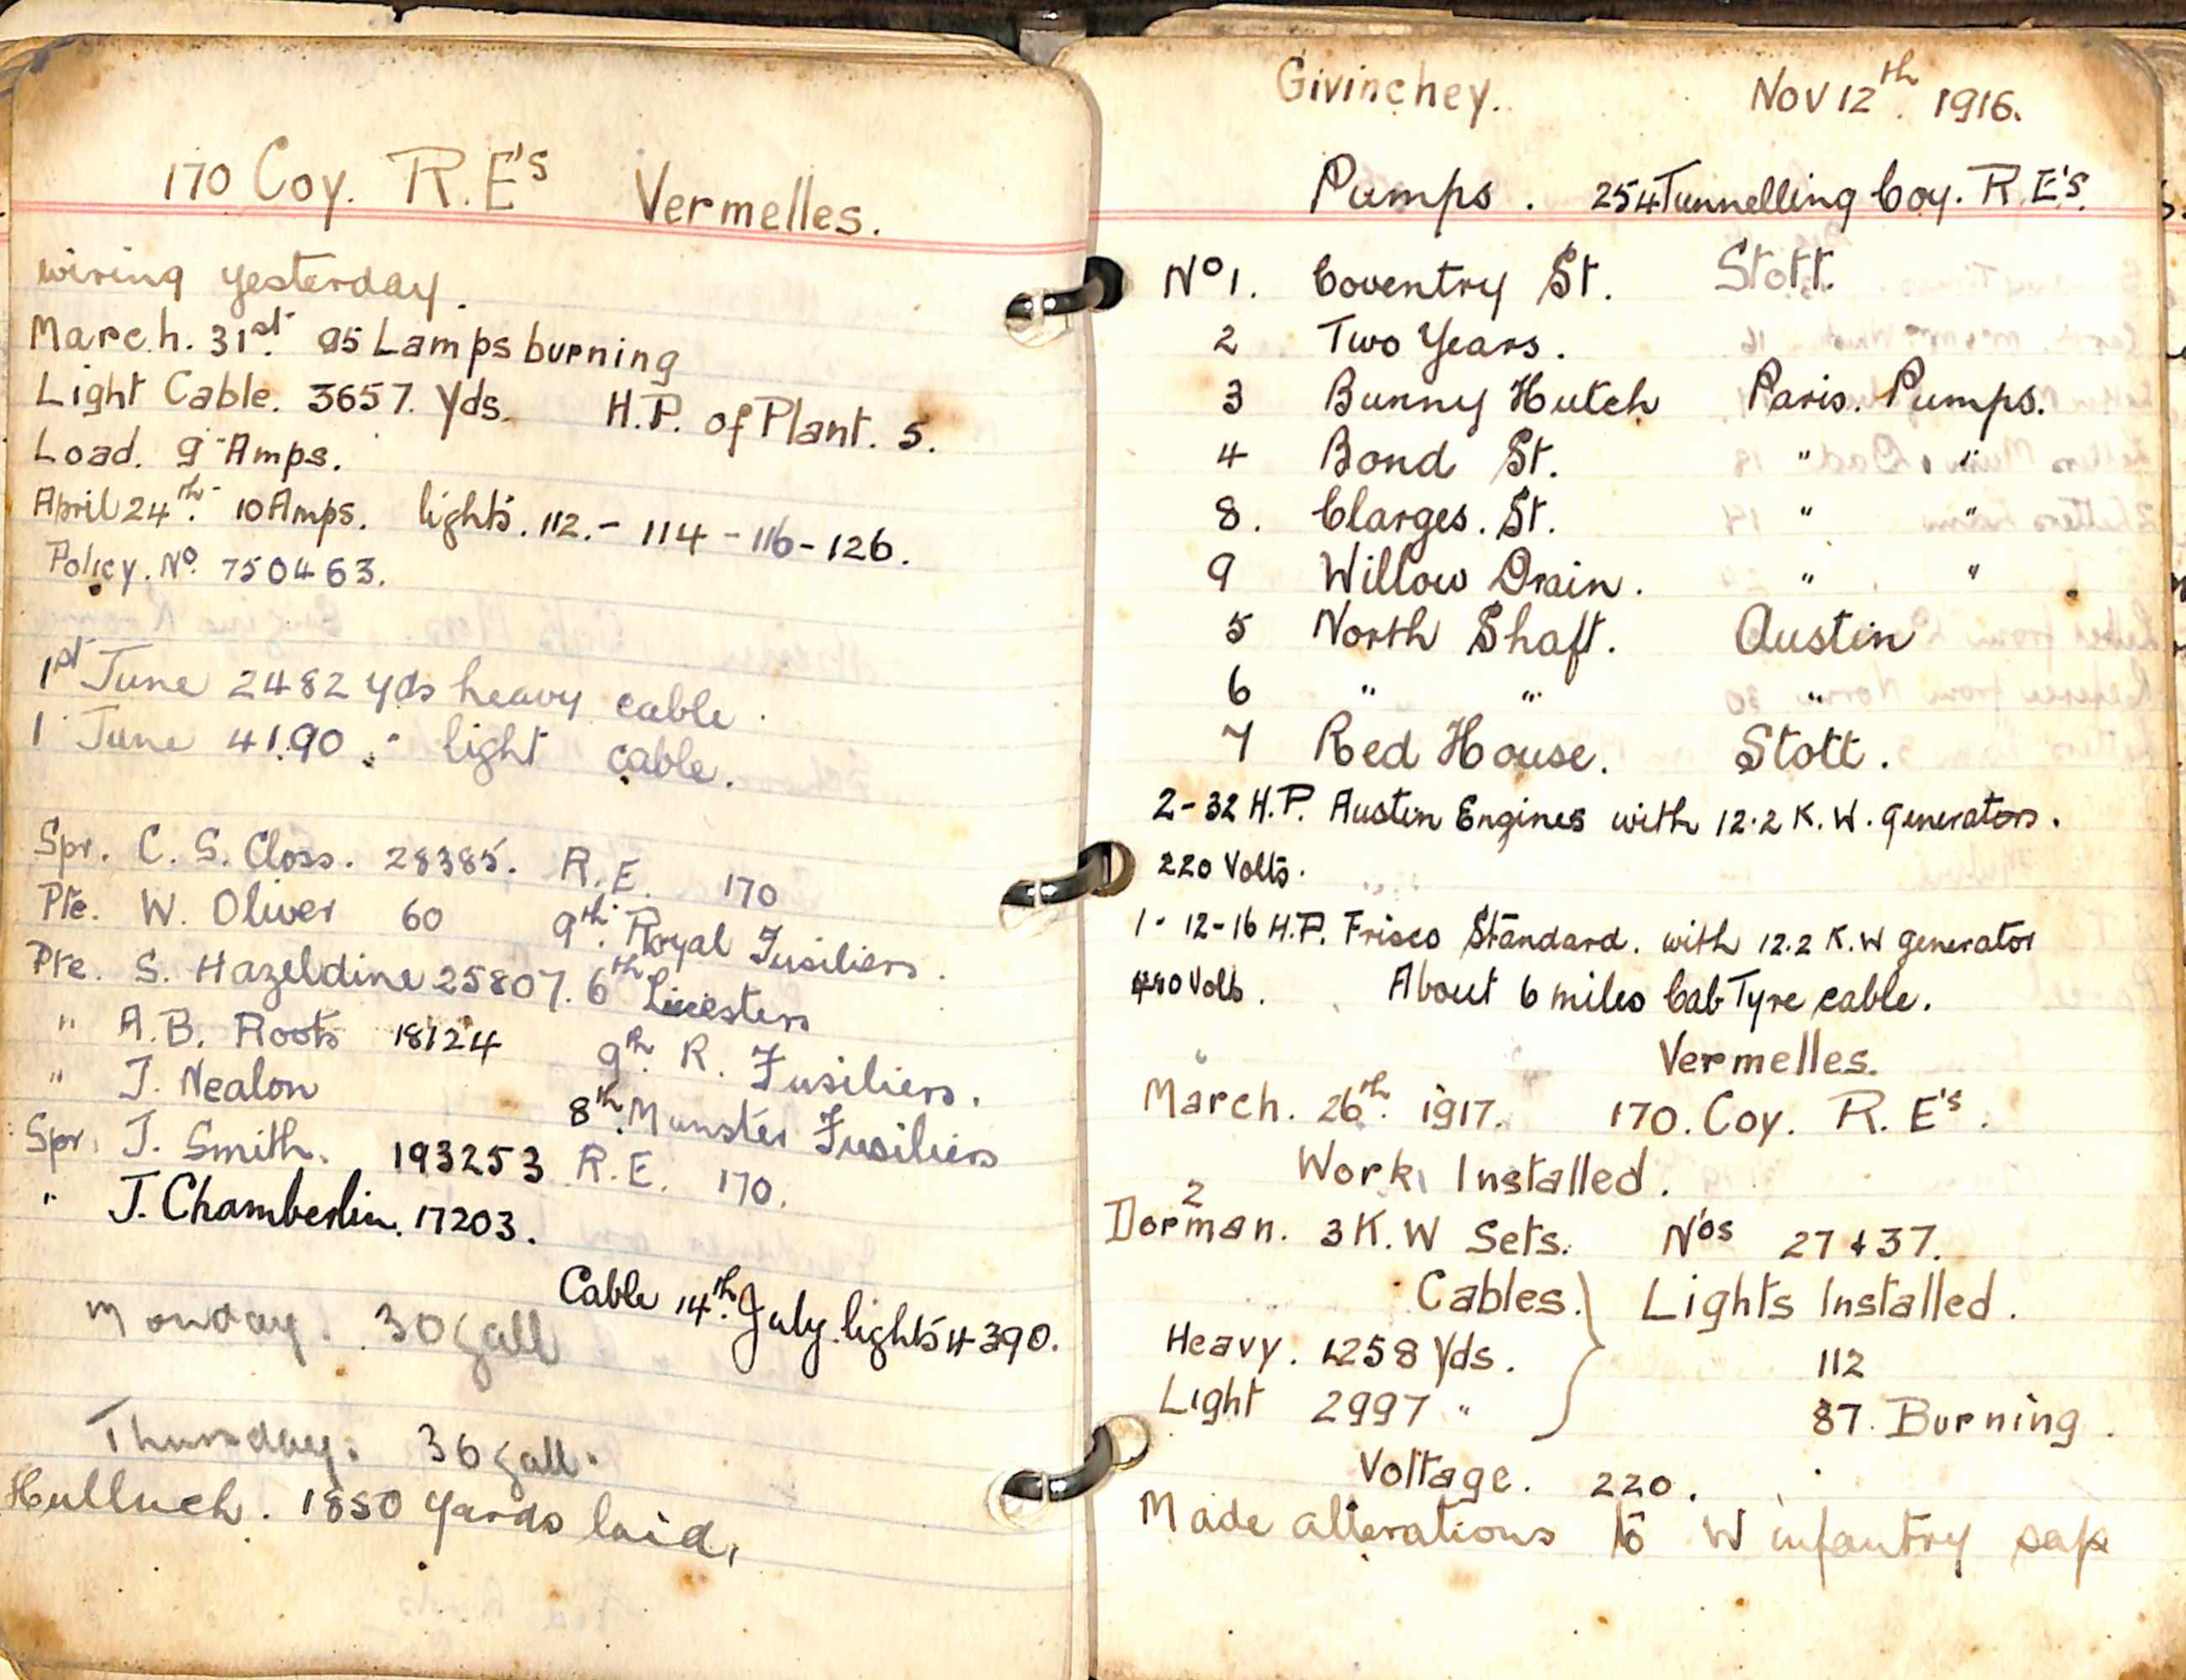 170 Coy. R.E's Vermelles.
wiring yesterday.
March. 31st. 95 Lamps burning
Light Cable. 3657. Yds. H.P. of Plant. 5.
Load. 9 Amps.
April 24th. 10 Amps. lights. 112. - 114 - 116 - 126.
Policy. No. 750463.
1st June 2482 yds heavy cable.
1 June 4190 " light cable.
Spr. C. S. Closs. 28385. R.E. 170
Pte. W. Oliver 60 9th. Royal Fusiliers.
Pte. S. Hazeldine 25807. 6th Liecesters
" A.B. Roots 18124 9th R. Fusiliers.
" J. Nealon 8th Munster Fusiliers
Spr. J. Smith. 193253 R.E. 170.
" J. Chamberlin. 17203.
Cable 14th. July. lights 4390.
Monday. 30 gall
Thursday. 36 gall.
Hulluch. 1850 yards laid.
Givinchey. Nov 12th. 1916.
Pumps. 254 Tunnelling Coy. R.E's.
No 1. Coventry St. Stott.
2 Two Years.
3 Bunny Hutch Paris. Pumps.
4 Bond St. " "
8. Clarges. St. " "
9 Willow Drain. " "
5 North Shaft. Austin
6 " " "
7 Red House. Stott.
2 - 32 H.P. Austin Engines with 12.2 K.W. generators.
220 Volts.
1 - 12-16 H.P. Frisco Standard. with 12.2 K.W generator
Volts. About 6 miles Cab Tyre cable.
Vermelles.
March. 26th. 1917. 170. Coy. R. E's.
Work Installed.
2
Dorman. 3 K.W Sets. Nos 27 & 37.
Cables. } Lights Installed.
Heavy. 1258 Yds. 112
Light 2997 " 87. Burning.
Voltage. 220.
Made alterations to W infantry sap